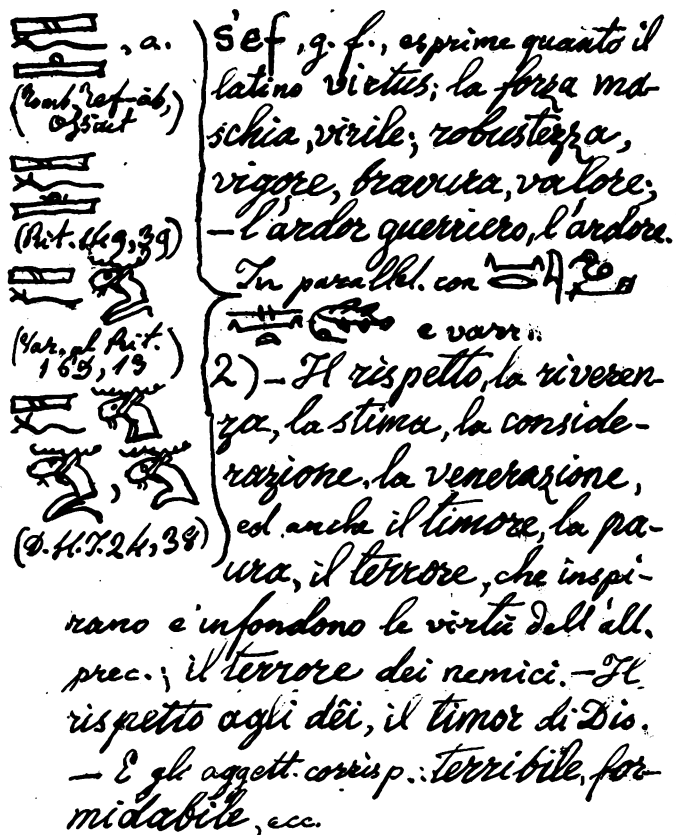 , a.
šef, g. f., esprime quanto il
latino virtus; la forza ma-
schia, virile; robustezza,
vigore, bravura, valore;
— l'ardor guerriero, l'ardore.
In parallel. con
e varr.:
2) — Il rispetto, la riveren-
za, la stima, la conside-
razione, la venerazione,
ed anche il timore, la pa-
ura, il terrore, che inspi-
rano e infondono le virtù dell'all.
prec.; il terrore dei nemici. — Il
rispetto agli dêi, il timor di Dio.
— E gli aggett. corrisp.: terribile, for-
midabile, ecc.
(Rit. 149, 39)
(Var. al Rit.
165, 13)
(D. H. I. 24, 38)